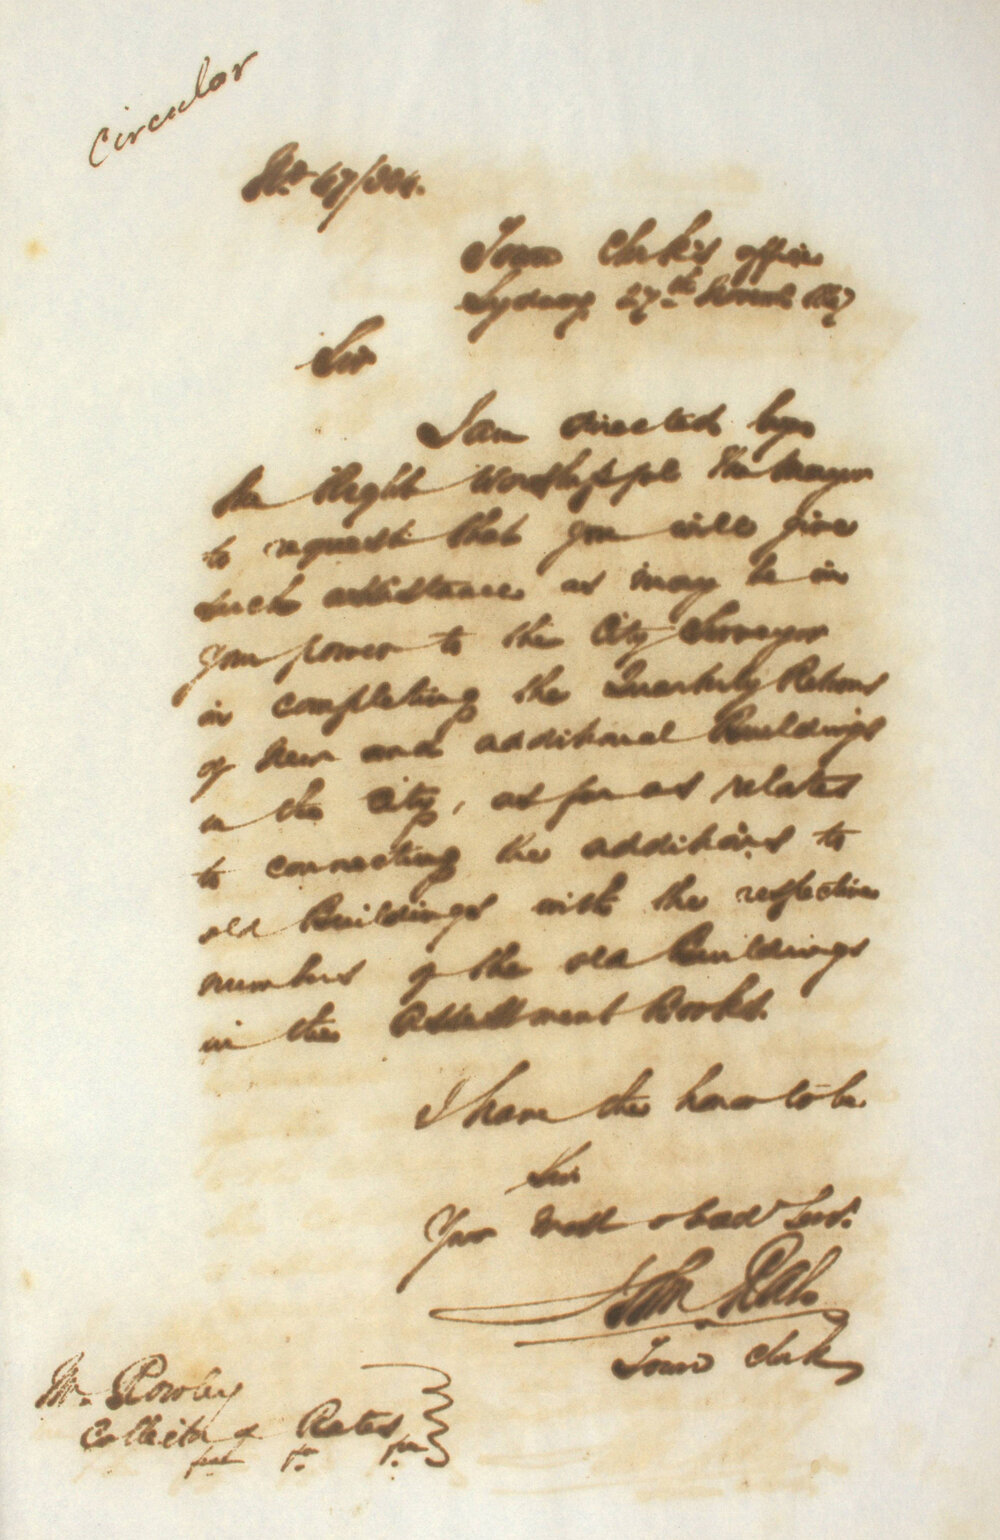 Circular
No. 47/304.
Town Clerk's office
Sydney 27th 1847
Sir
I am directed by
the Right Worshipful the Mayor
to request that you will give
such assistance as may be in
your power to the City Surveyor
in completing the Quarterly Returns
of New and additional Buildings
in the City, as far as relates
to connecting the additions to
old Buildings with the respective
numbers of the old Buildings
in the Assessment Books.
I have the honor to be
Sir
Your most obedt Servt.
John Rae
Town Clerk
Mr. Rowley
Collector of Rates